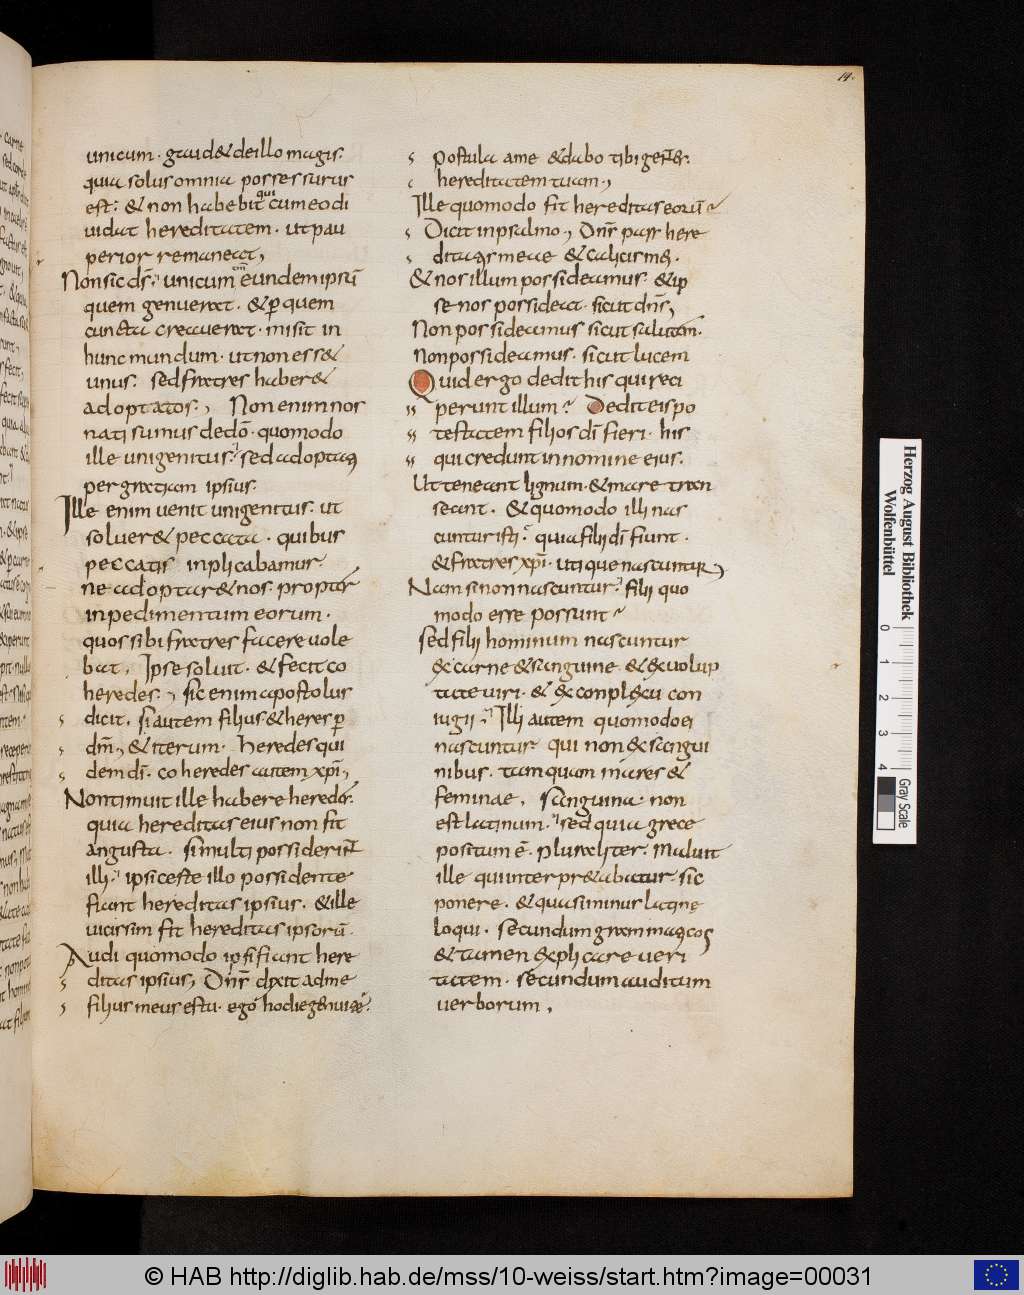 14.
unicum · gaud& deillo magis:
quia solus omnia possessurus
est: & non habebit qui cum eo di
uidat hereditatem · ut pau
perior remaneat,
Non sic ds̄; unicum eundem ipsū
quem genuerat · & ꝑ quem
cuncta creauerat · misit in
hunc mundum · ut non ess&
unus: sed fratres haber&
adoptatos; Non enim nos
nati sumus de dō · quomodo
ille unigenitus; sed adoptati
per gratiam ipsius.
Ille enim uenit unigenitus: ut
soluer& peccata · quibus
peccatis inplicabamur ·
ne adoptar& nos · propter
inpedimentum eorum ·
quos sibi fratres facere uole
bat, Ipse soluit · & fecit co
heredes; sic enim apostolus
dicit, si autem filius & heres ꝑ
dm̄, & iterum · Heredes qui
dem dī · coheredes autem xp̄i,
Non timuit ille habere heredes ·
quia hereditas eius non fit
angusta · si multi possiderint
illi; ipsi certe illo possidente
fiunt hereditas ipsius · & ille
uicissim fit hereditas ipsorū ·
Audi quomodo ipsi fiant here
ditas ipsius, Dn̄s dixit ad me
filius meus es tu · ego hodie genui te
Postula a me & dabo tibi gentes ·
hereditatem tuam,
Ille quomodo fit hereditas eorū?
Dicit in psalmo, Dn̄s pars here
ditatis meae & calicis mei ·
& nos illum possideamus · & ip
se nos possideat · sicut dn̄s,
Non possideamus sicut salutem ·
Non possideamus · sicut lucem
Quid ergo dedit his qui reci
perunt illum? Dedit eis po
testatem filios dī fieri · his
qui credunt in nomine eius ·
Ut teneant lignum · & mare tran
seant · & quomodo illi nas
cuntur isti? quia filii dī fiunt ·
& fratres xp̄i · utique nascuntur,
Nam si non nascuntur; filii quo
modo esse possunt?
sed filii hominum nascuntur
ex carne & sanguine & ex uolup
tate uiri · & ex conplexu con
iugii; Illi autem quomodo ei
nascuntur? qui non ex sangui
nibus · tamquam mares &
feminae, sanguina non
est latinum; sed quia grece
positum ē pluraliter · maluit
ille qui interpr&abatur · sic
ponere · & quasi minus latine
loqui · secundum grammaticos
& tamen explicare ueri
tatem · secundum auditum
uerborum,
Herzog August Bibliothek
Wolfenbüttel
0 1 2 3 4
Gray Scale
© HAB http://diglib.hab.de/mss/10-weiss/start.htm?image=00031